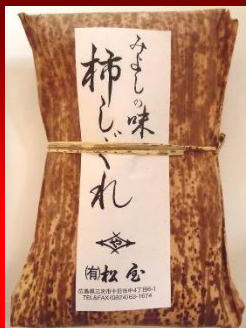 みよしの味
柿しぐれ
㈲松屋
広島県三次市十日市中4丁目6-1
TEL&FAX(0824)63-1674